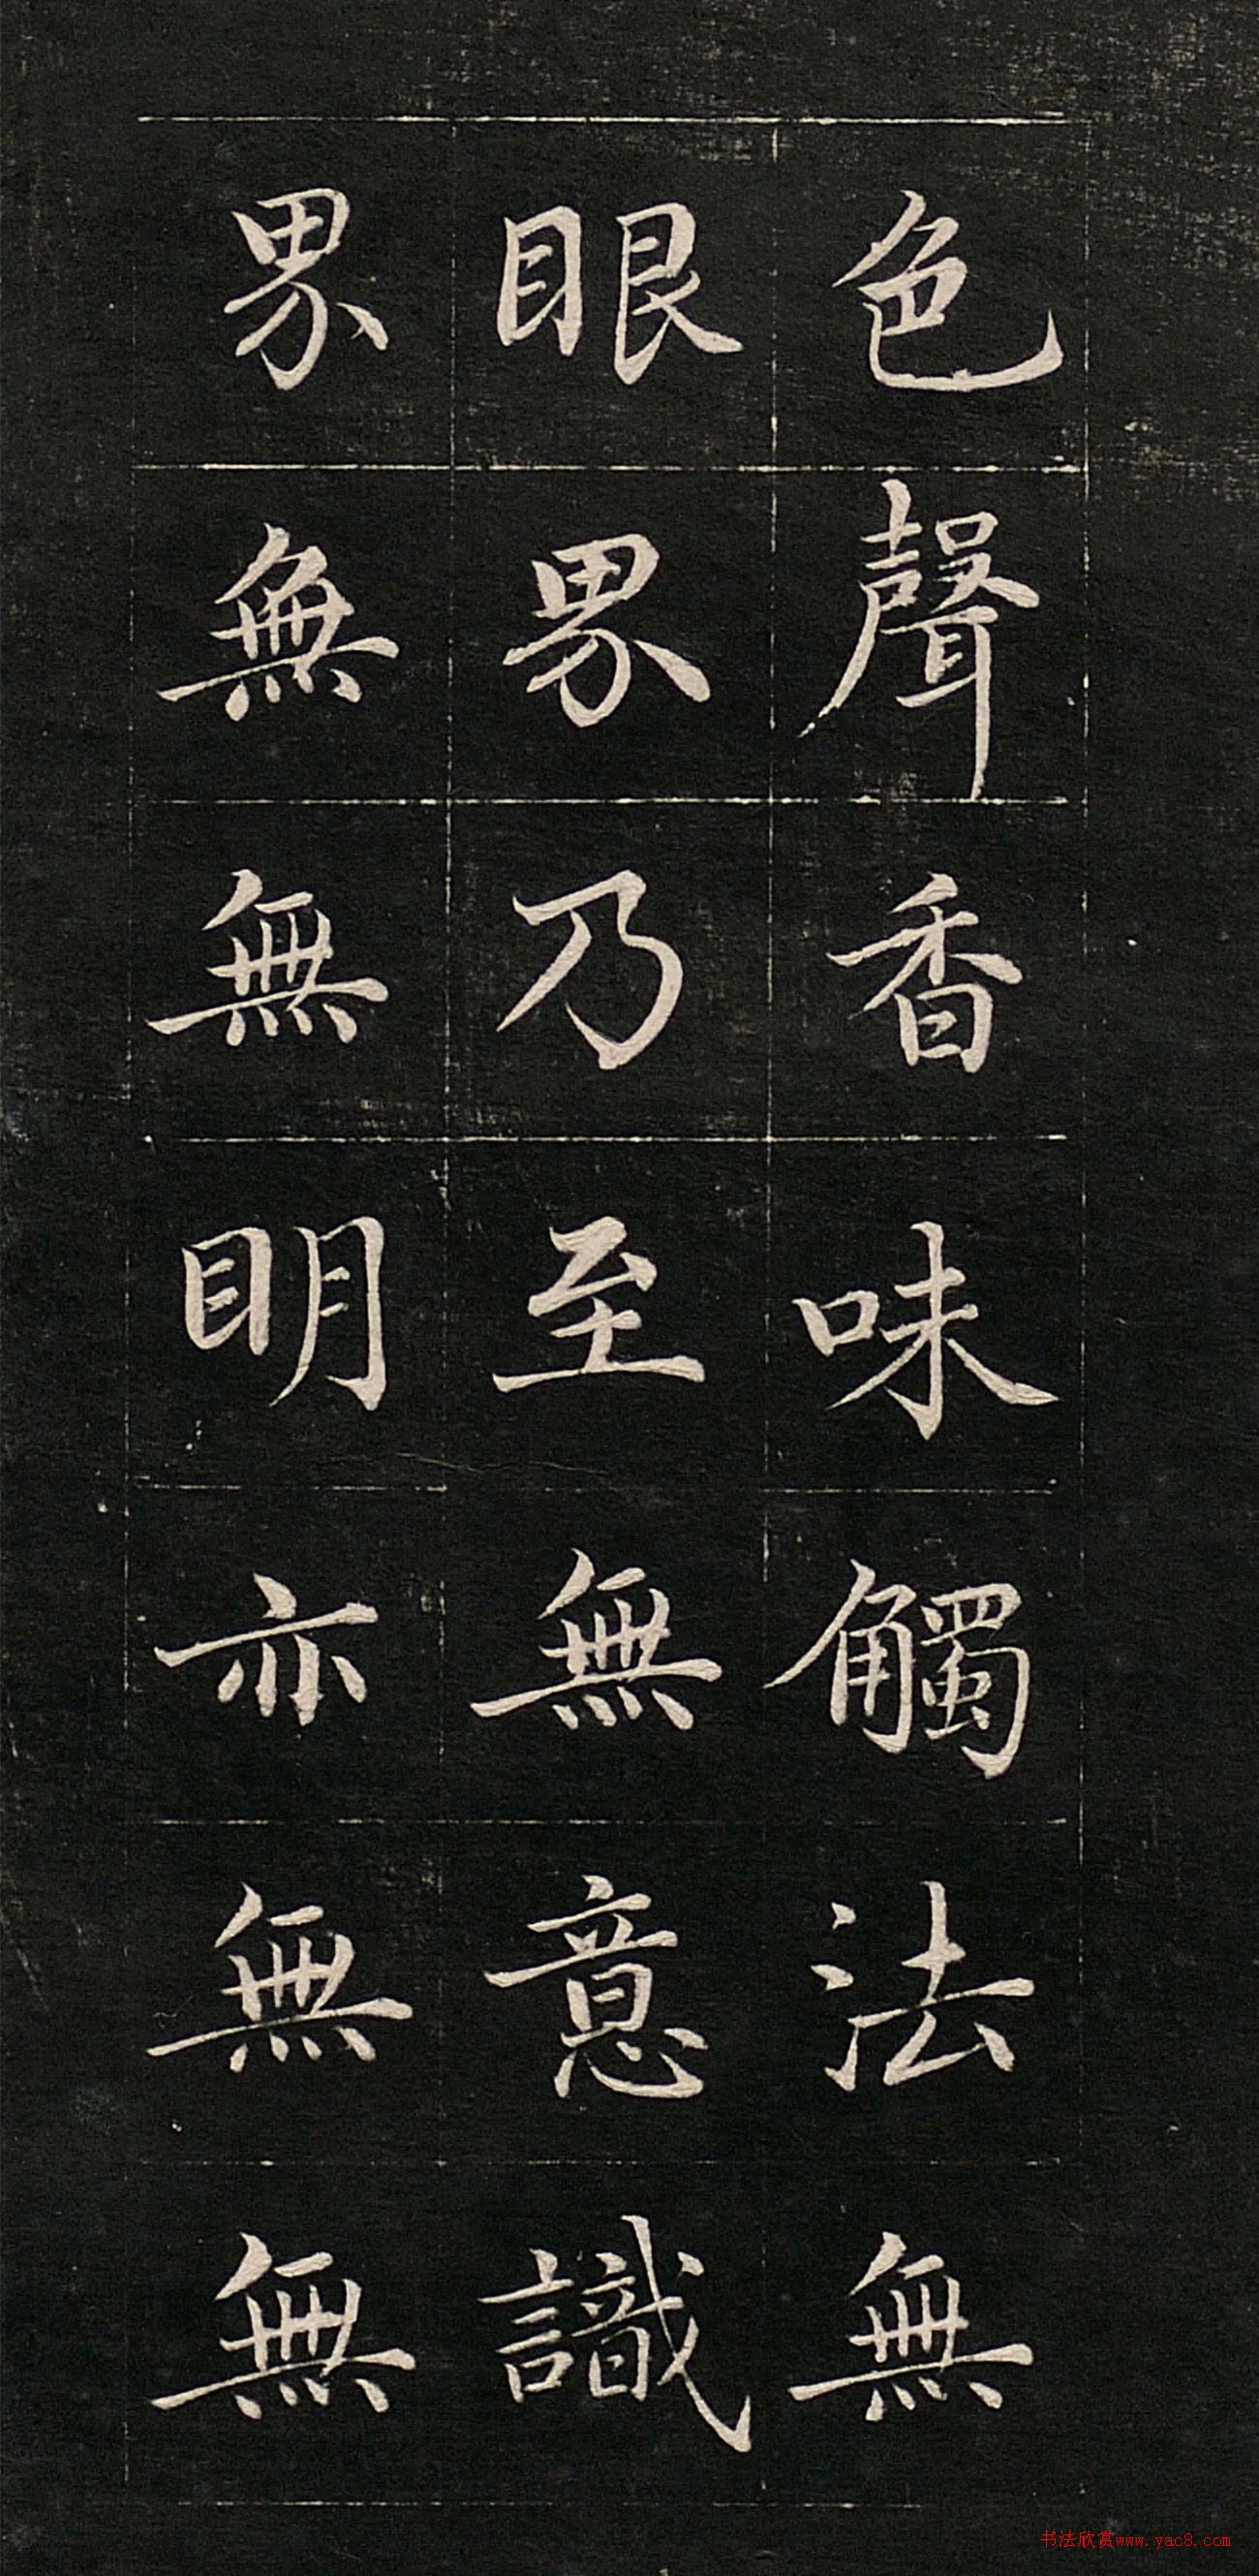 色聲香味觸法無
眼界乃至無意識
界無無明亦無無
书法欣赏www.yac8.com